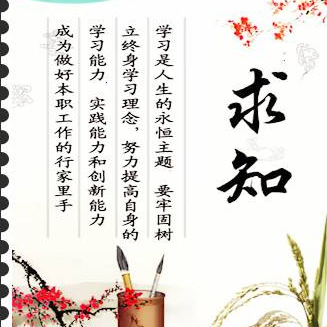 求知
学习是人生的永恒主题 要牢固树
立终身学习理念，努力提高自身的
学习能力、实践能力和创新能力
成为做好本职工作的行家里手